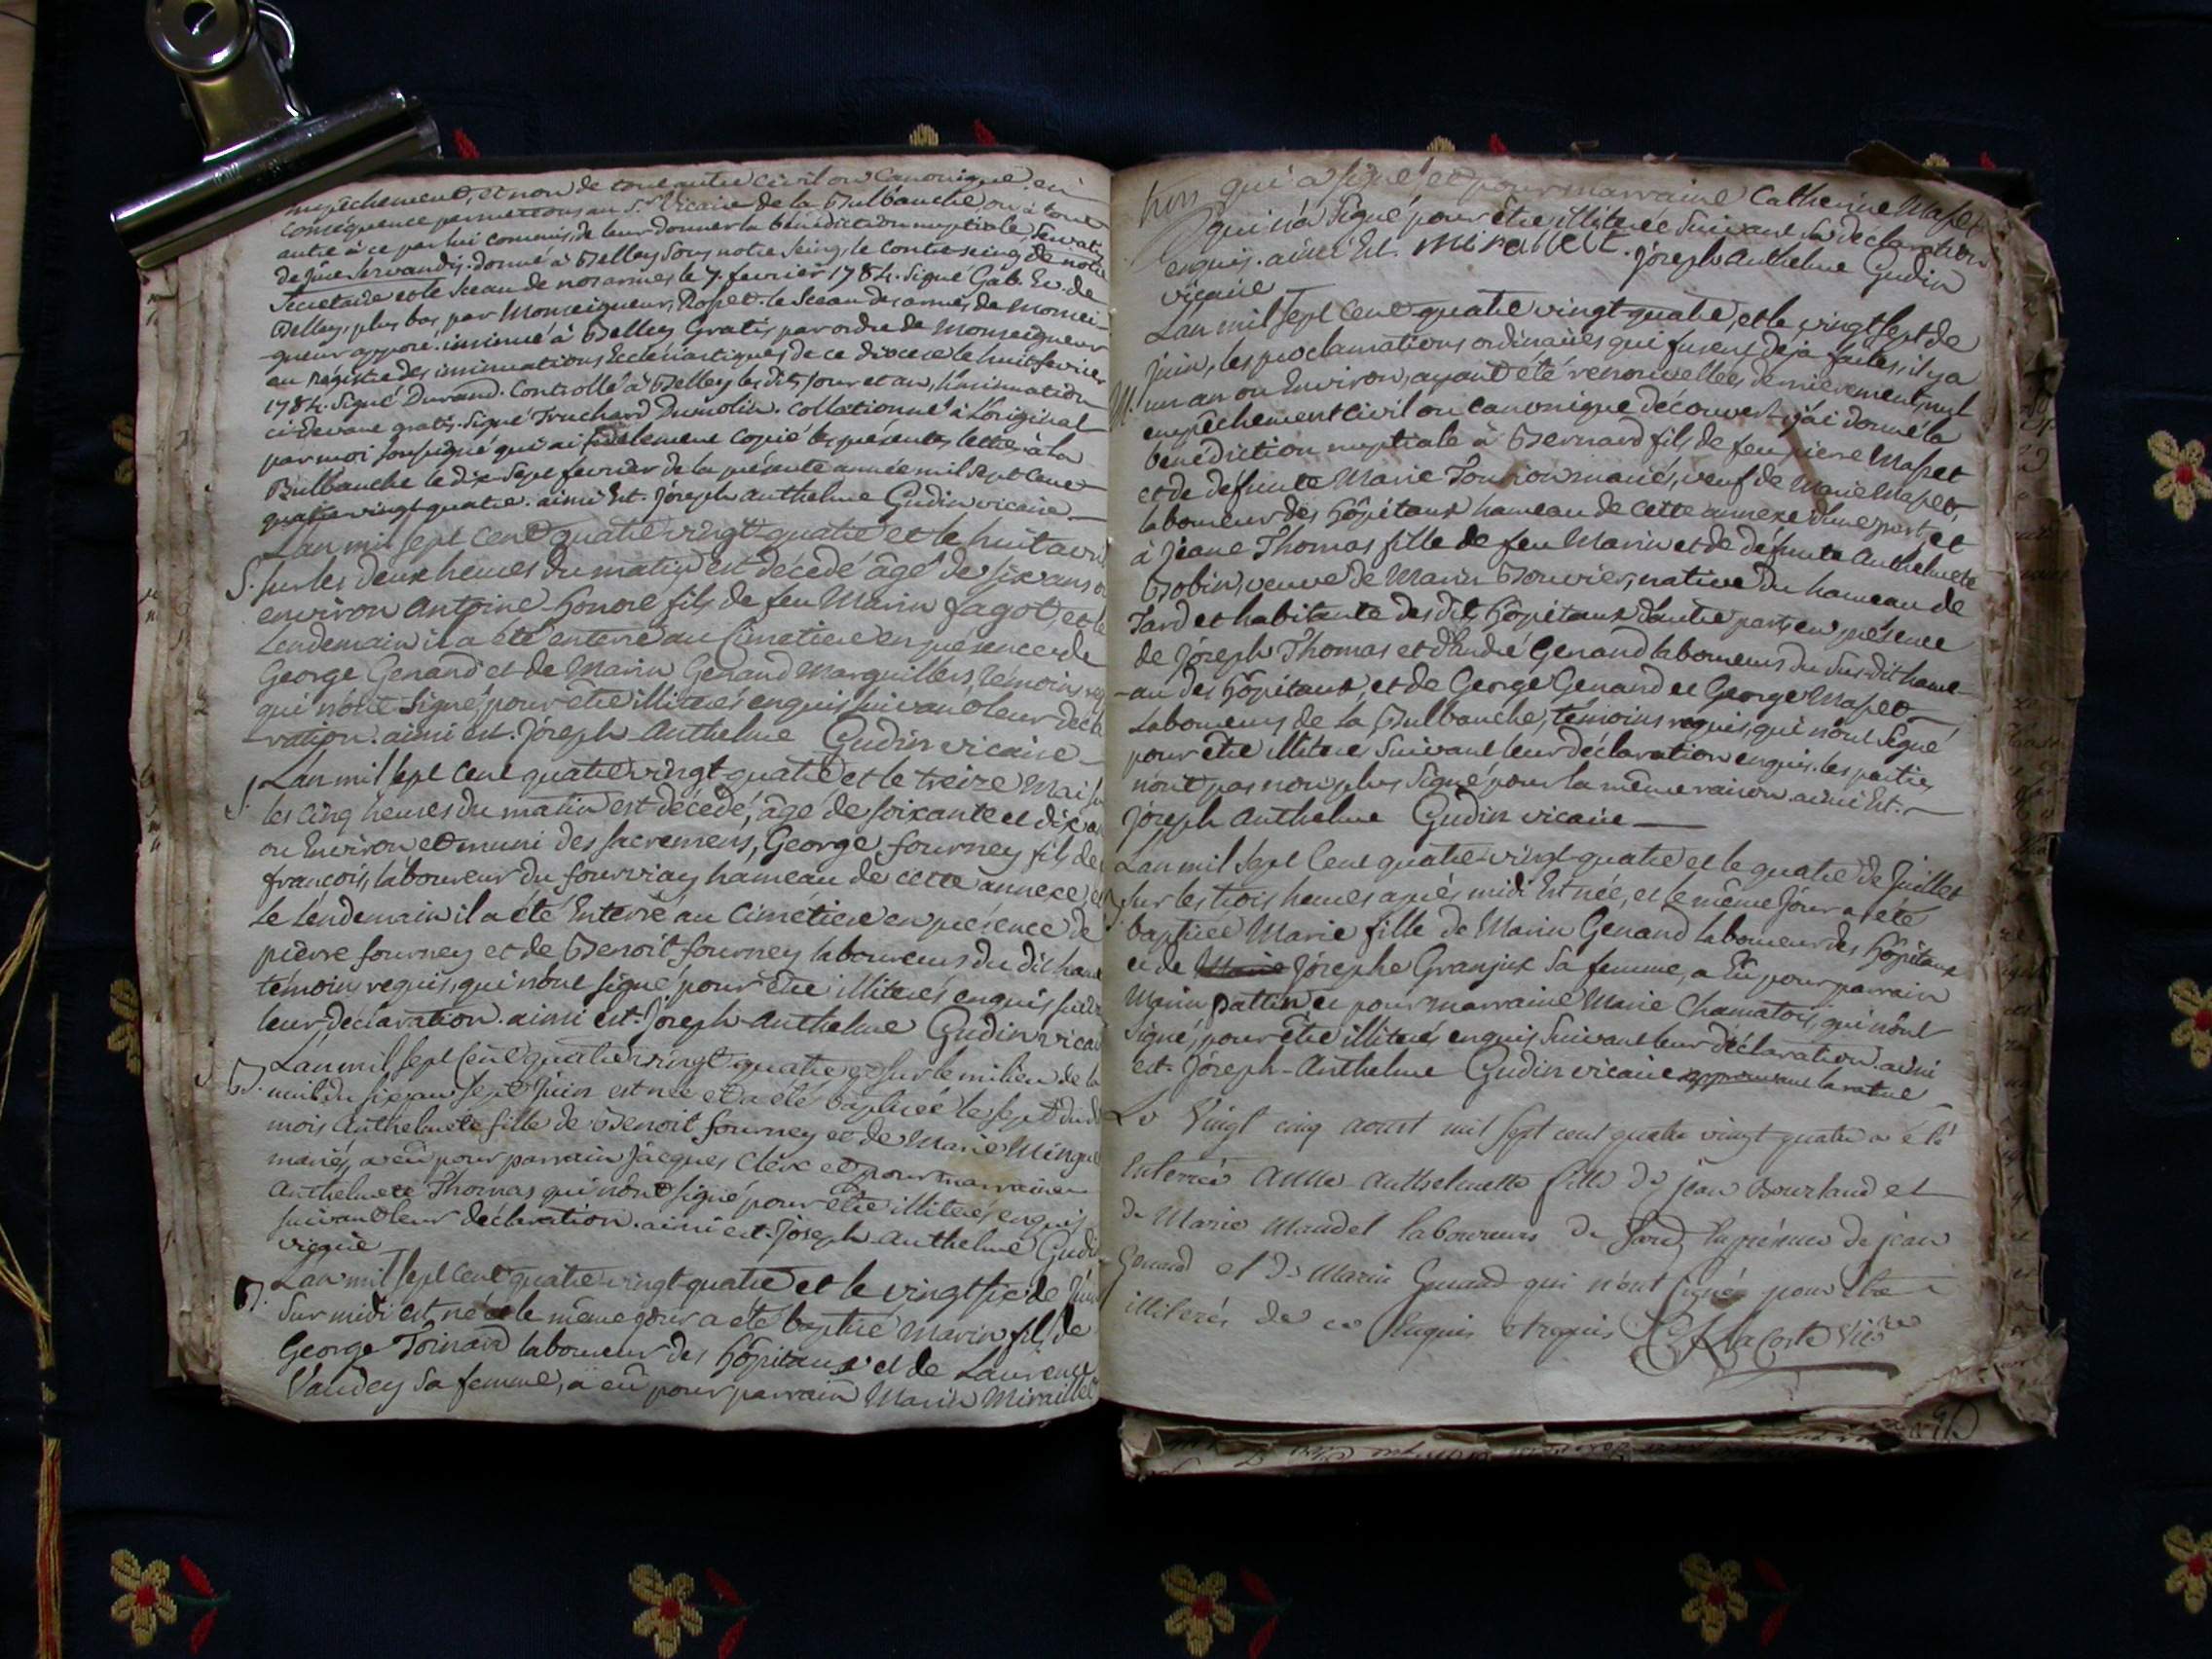 empêchement, et non de tout autre civil ou Canonique. en
conséquence permettons au Sr. Vicaire de la Bulbanche ou à tout
autre à ce par lui commis, de leur donner la bénédiction nuptiale, servatis
de jure servandis. donné à Belley sous notre seing, le contreseing de notre
Secretaire et le sceau de nos armes le 7. fevrier 1784. signé Gab. Ev. de
Belley, plus bas, par Monseigneur, Rosset. le sceau des armes de Monsei-
-gneur apposé. insinué à Belley Gratis par ordre de Monseigneur
au Régistre des insinuations Ecclésiastiques de ce diocese le huit fevrier
1784. signé Durand. Controllé à Belley les dits jour et an, l'insinuation
ci devant gratis. signé Truchard Dumolin. Collationné à L'original
par moi soussigné qui ai fidelement copié les présentes lettres à la
Bulbanche le dix sept fevrier de la présente année mil sept cent
quatre vingt quatre. ainsi Est. Joseph Anthelme Gudin vicaire
L'an mil sept cent quatre vingt quatre et le huit avril
S. sur les deux heures du matin est décedé âgé de six ans ou
environ Antoine-Honoré fils de feu Marin Jagot, et le
Lendemain il a été enterré au Cimetiere en présence de
George Genand et de Marin Genand Marguilliers, témoins req
qui n'ont signé pour être illiterés enquis suivant leur décla
-ration. ainsi est. Joseph-Anthelme Gudin vicaire
S. L'an mil sept cent quatre vingt quatre et le treize Mai sur
les cinq heures du matin est décedé, âgé de soixante et dix a
ou Environ et muni des sacremens, George fourney fils de
françois, laboureur du fourviay hameau de cette annexe, et
Le Lendemain il a été Enterré au Cimetiere en présence de
pierre fourney et de Benoit fourney laboureurs du dit hame
témoins requis, qui n'ont signé pour être illiterés enquis suiva
leur déclaration. ainsi est. Joseph-Anthelme Gudin vicai
L'an mil sept cent quatre vingt quatre et sur le milieu de la
B. nuit du six au sept Juin est née et a été baptisée le sept du d
mois Anthelmete fille de Benoit fourney et de Marie Mingue
mariés, a eu pour parrain Jacques Clerc et pour marraine
Anthelmete Thomas qui n'ont signé pour être illiterés enquis
suivant leur déclaration. ainsi est. Joseph-Anthelme Gudin
vicaire
B. L'an mil sept cent quatre vingt quatre et le vingt six de Juin
Sur midi est né et le même jour a été baptisé Marin fils de
George Toinard laboureur des Hôpitaux et de Laurence
Vaudey Sa femme, a eu pour parrain Marin Miraillet
qui a signé et pour marraine Catherine Masset
qui n'a signé pour être illiterée suivant sa déclaration
enquis. ainsi Est. mirallet. Joseph Anthelme Gudin
vicaire
L'an mil sept cent quatre vingt quatre, et le vingt sept de
Juin, les proclamations ordinaires qui furent déja faites, il y a
M. un an ou Environ, ayant été renouvellées dernièrement, nul
empêchement civil ou canonique découvert, j'ai donné la
bénédiction nuptiale à Bernard fils de feu pierre Masset
et de défunte Marie Fournon mariés, veuf de Marie Masset,
laboureur des Hôpitaux hameau de cette annexe d'une part, et
à Jeane Thomas fille de feu Marin et de défunte Anthelmete
Bobin, veuve de Marin Bouvier, native du hameau de
Jard et habitante des dits Hôpitaux d'autre part, en présence
de Joseph Thomas et d'André Genand laboureurs du sus-dit hame-
-au des Hôpitaux, et de George Genand et George Masset
Laboureurs de la Bulbanche, témoins requis, qui n'ont signé
pour être illiteré suivant leur déclaration enquis. les parties
n'ont pas non plus signé pour la même raison. ainsi Est.
Joseph Anthelme Gudin vicaire
L'an mil sept cent quatre-vingt-quatre et le quatre de Juillet
B. sur les trois heures après midi Est née, et le même Jour a été
baptisée Marie fille de Marin Genand laboureur des Hôpitaux
et de Marie Josephe Granjux Sa femme, a Eu pour parrain
Marin pattin et pour marraine Marie Chamatois, qui n'ont
signé, pour être illiterés enquis suivant leur déclaration. ainsi
est. Joseph-Anthelme Gudin vicaire approuvant la rature
Le Vingt cinq aoust mil sept cent quatre vingt quatre a été
Enterrée Anne Anthelmette fille de jean Bourland et
de Marie Maudet laboureurs de Jard En présence de jean
Genand et de Marin Genand qui n'ont signés pour être
illiterés de ce Enquis et requis Lacoste Vicre